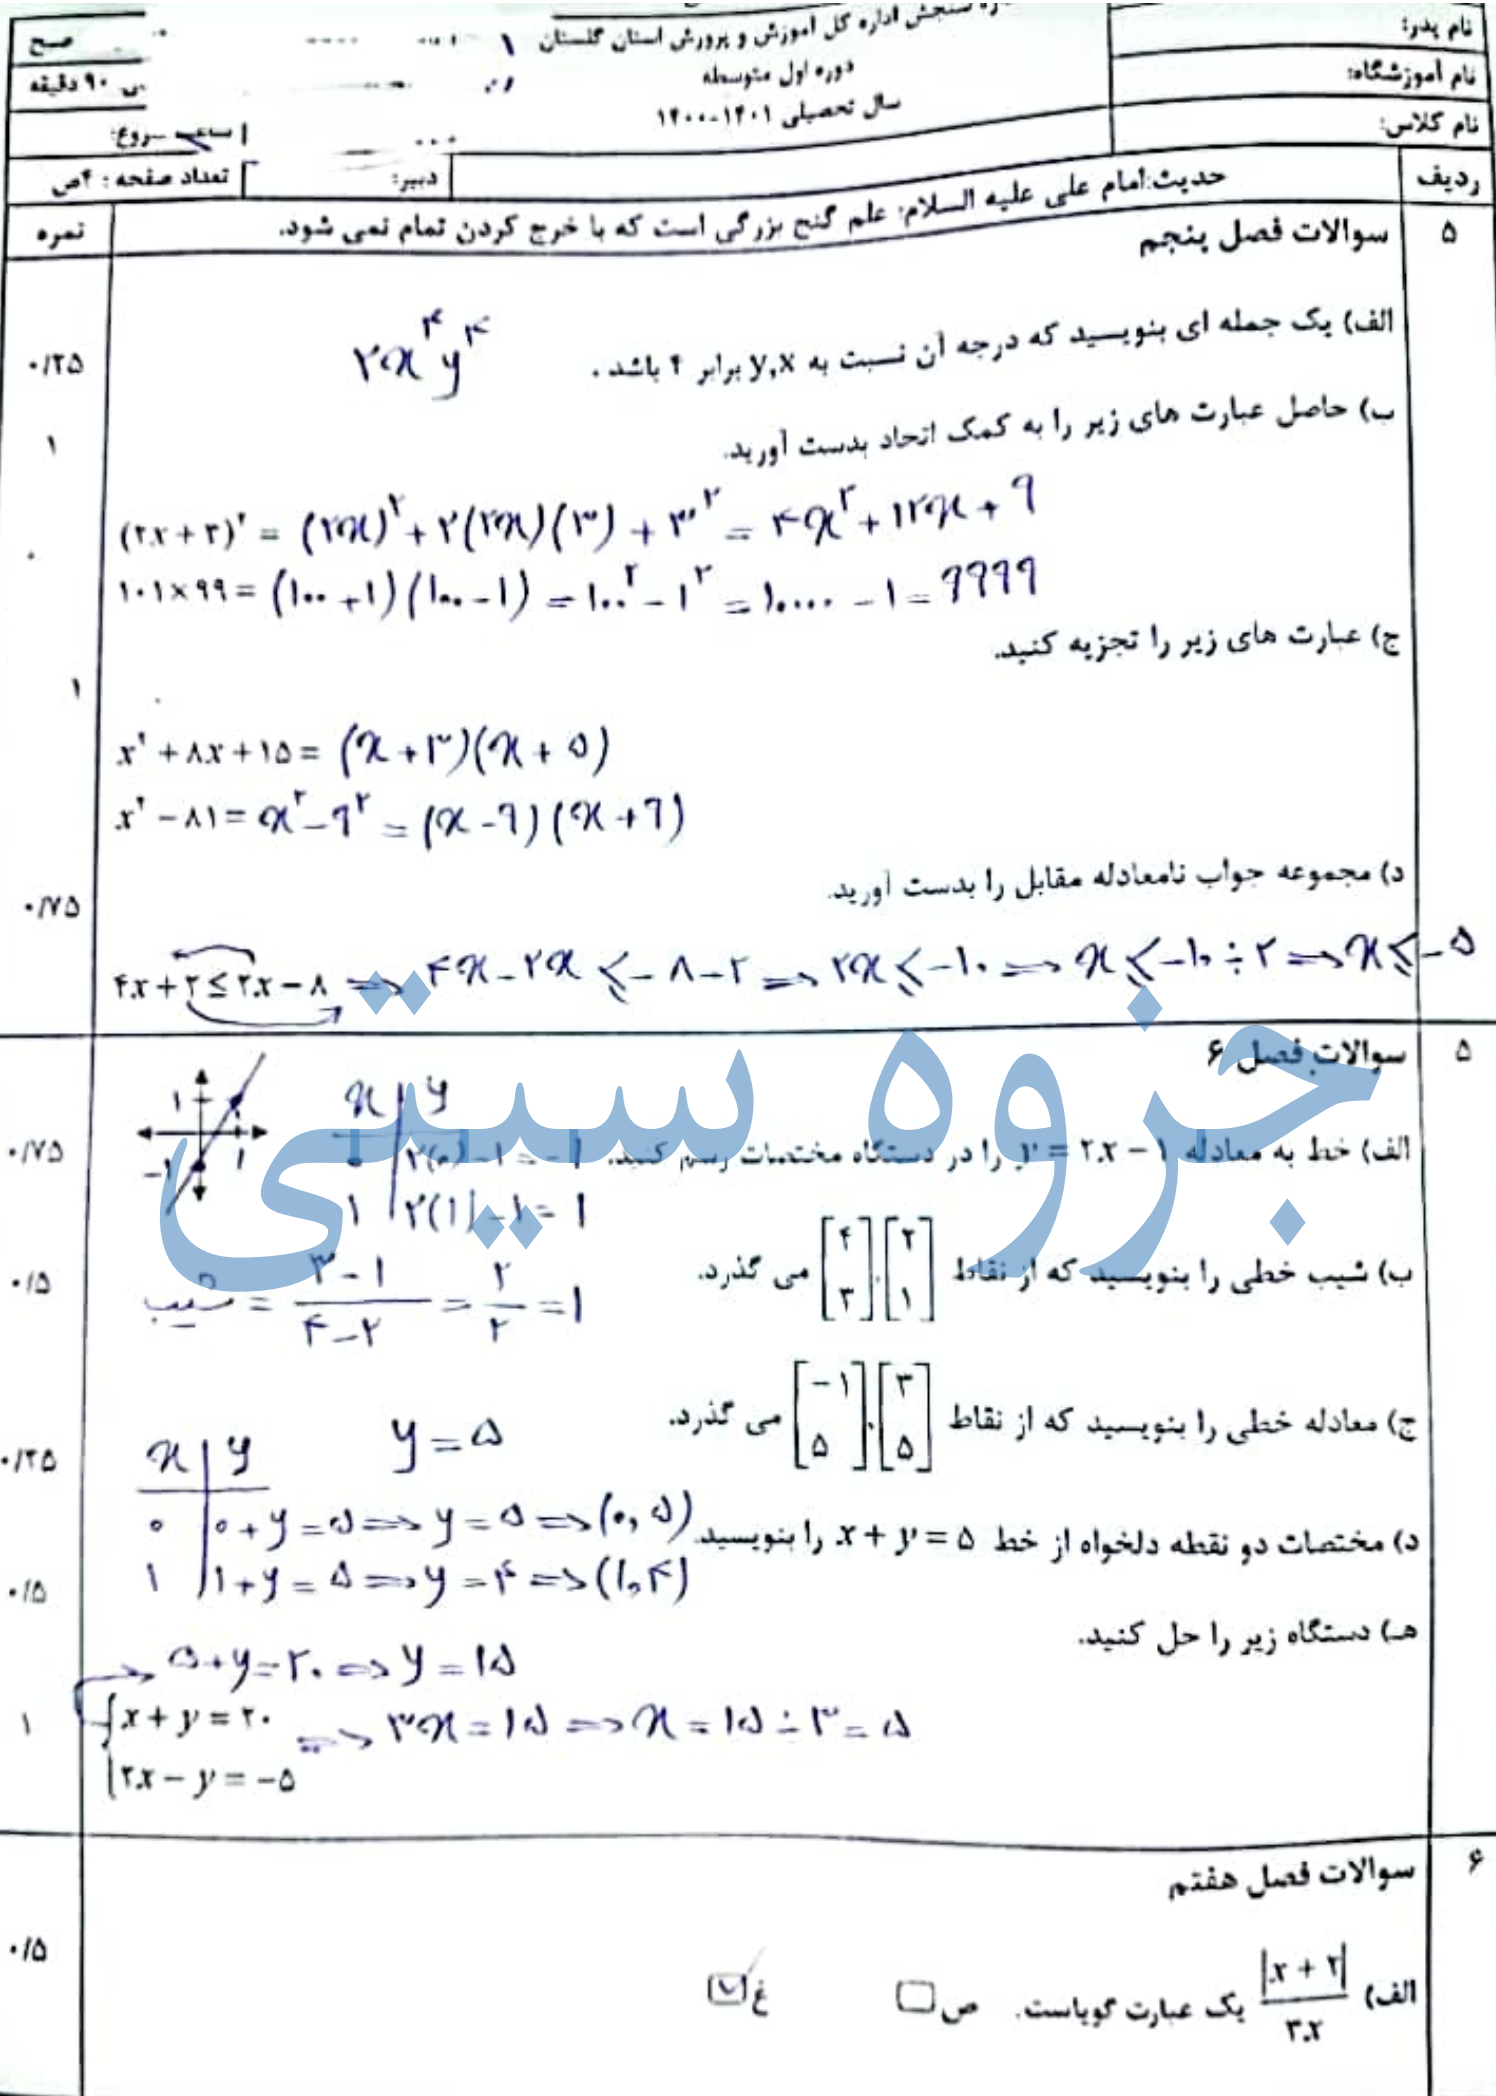 نام پدر:
نام آموزشگاه:
نام کلاس:
سنجش اداره کل آموزش و پرورش استان گلستان
دوره اول متوسطه
سال تحصیلی ۱۴۰۱-۱۴۰۰
صبح
۹۰ دقیقه
ساعت شروع:
دبیر:
تعداد صفحه : ۴ص
ردیف
حدیث:امام علی علیه السلام: علم گنج بزرگی است که با خرج کردن تمام نمی شود.
نمره
۵
سوالات فصل پنجم
الف) یک جمله ای بنویسید که درجه آن نسبت به y,x برابر ۴ باشد . ۲x^۴y^۴
۰/۲۵
ب) حاصل عبارت های زیر را به کمک اتحاد بدست آورید.
۱
(۲x + ۳)^۲ = (۲x)^۲ + ۲(۲x)(۳) + ۳^۲ = ۴x^۲ + ۱۲x + ۹
۱۰۱×۹۹ = (۱۰۰+۱)(۱۰۰-۱) = ۱۰۰^۲ - ۱^۲ = ۱۰۰۰۰ - ۱ = ۹۹۹۹
ج) عبارت های زیر را تجزیه کنید.
۱
x^۲ + ۸x + ۱۵ = (x+۳)(x+۵)
x^۲ - ۸۱ = x^۲ - ۹^۲ = (x-۹)(x+۹)
د) مجموعه جواب نامعادله مقابل را بدست آورید.
۰/۷۵
۴x + ۲ ≤ ۲x - ۸ ⇒ ۴x - ۲x ≤ -۸ - ۲ ⇒ ۲x ≤ -۱۰ ⇒ x ≤ -۱۰ ÷ ۲ ⇒ x ≤ -۵
جزوه سیتی
۵
سوالات فصل ۶
الف) خط به معادله y = ۲x - ۱ را در دستگاه مختصات رسم کنید.
۰/۷۵
x | y
۰ | ۲(۰)-۱ = -۱
۱ | ۲(۱)-۱ = ۱
۱
۱
-۱
ب) شیب خطی را بنویسید که از نقاط [۲ ۱],[۴ ۳] می گذرد.
۰/۵
شیب = (۳-۱)/(۴-۲) = ۲/۲ = ۱
ج) معادله خطی را بنویسید که از نقاط [۳ ۵],[-۱ ۵] می گذرد.
۰/۲۵
y = ۵
د) مختصات دو نقطه دلخواه از خط x + y = ۵ را بنویسید.
۰/۵
x | y
۰ | ۰+y=۵ ⇒ y=۵ ⇒ (۰,۵)
۱ | ۱+y=۵ ⇒ y=۴ ⇒ (۱,۴)
هـ) دستگاه زیر را حل کنید.
۱
۵+y=۲۰ ⇒ y=۱۵
x + y = ۲۰ ⇒ ۳x = ۱۵ ⇒ x = ۱۵ ÷ ۳ = ۵
۲x - y = -۵
۶
سوالات فصل هفتم
۰/۵
الف) |x + ۲|/۳x یک عبارت گویاست. ص □ غ ☑